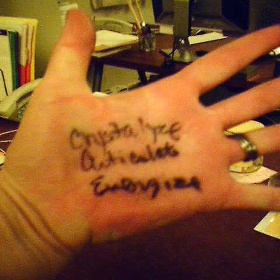 Crystalyze
Articulate
Energize